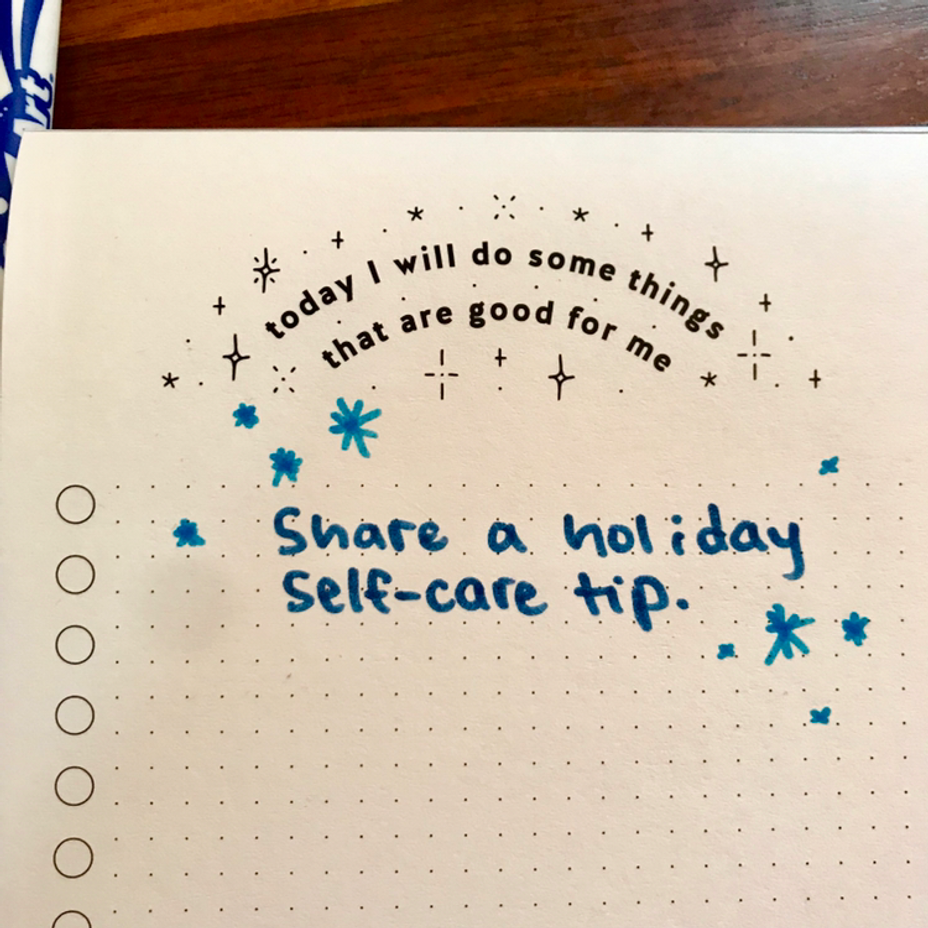 today I will do some things
that are good for me
Share a holiday
self-care tip.